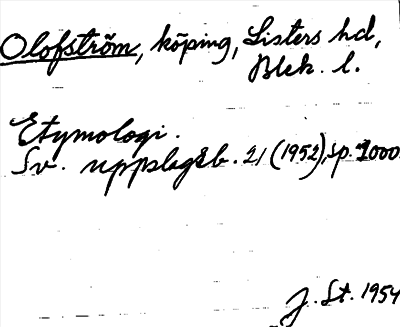 Olofström, köping, Listers hd,
Blek. l.
Etymologi.
Sv. uppslagsb. 21 (1952), sp. 1000.
J. St. 1954